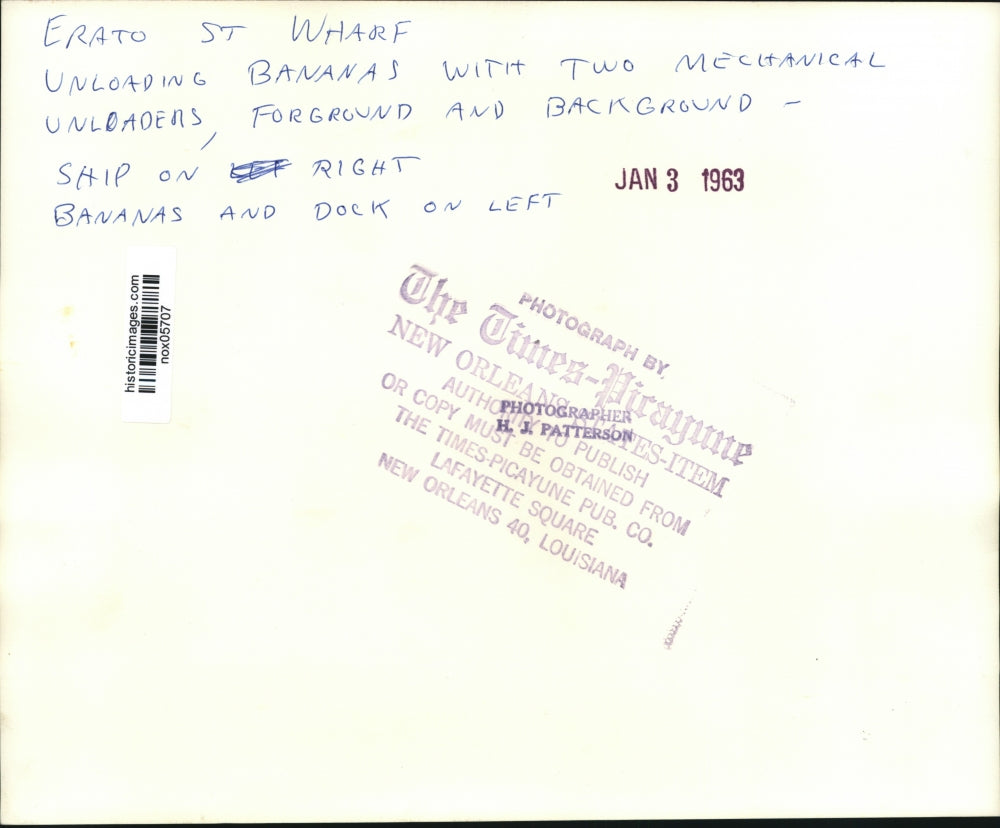 ERATO ST WHARF
UNLOADING BANANAS WITH TWO MECHANICAL
UNLOADERS, FORGROUND AND BACKGROUND -
SHIP ON RIGHT
BANANAS AND DOCK ON LEFT
JAN 3 1963
historicimages.com
nox05707
PHOTOGRAPH BY
The Times-Picayune
NEW ORLEANS STATES-ITEM
PHOTOGRAPHER
H. J. PATTERSON
AUTHORITY TO PUBLISH
OR COPY MUST BE OBTAINED FROM
THE TIMES-PICAYUNE PUB. CO.
LAFAYETTE SQUARE
NEW ORLEANS 40, LOUISIANA